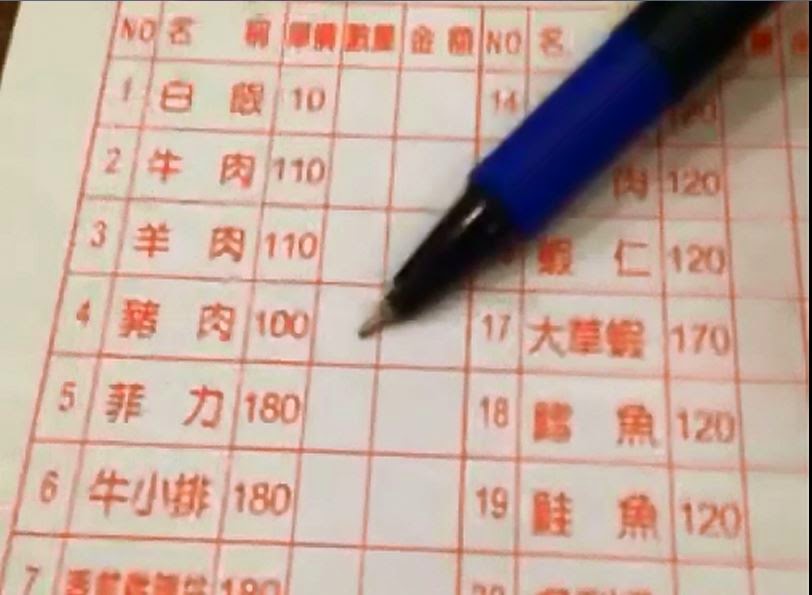 NO 名 稱 單價 數量 金 額 NO 名
1 白 飯 10 14
2 牛 肉 110 肉 120
3 羊 肉 110 蝦 仁 120
4 豬 肉 100 17 大草蝦 170
5 菲 力 180 18 鱈 魚 120
6 牛小排 180 19 鮭 魚 120
7 180 20